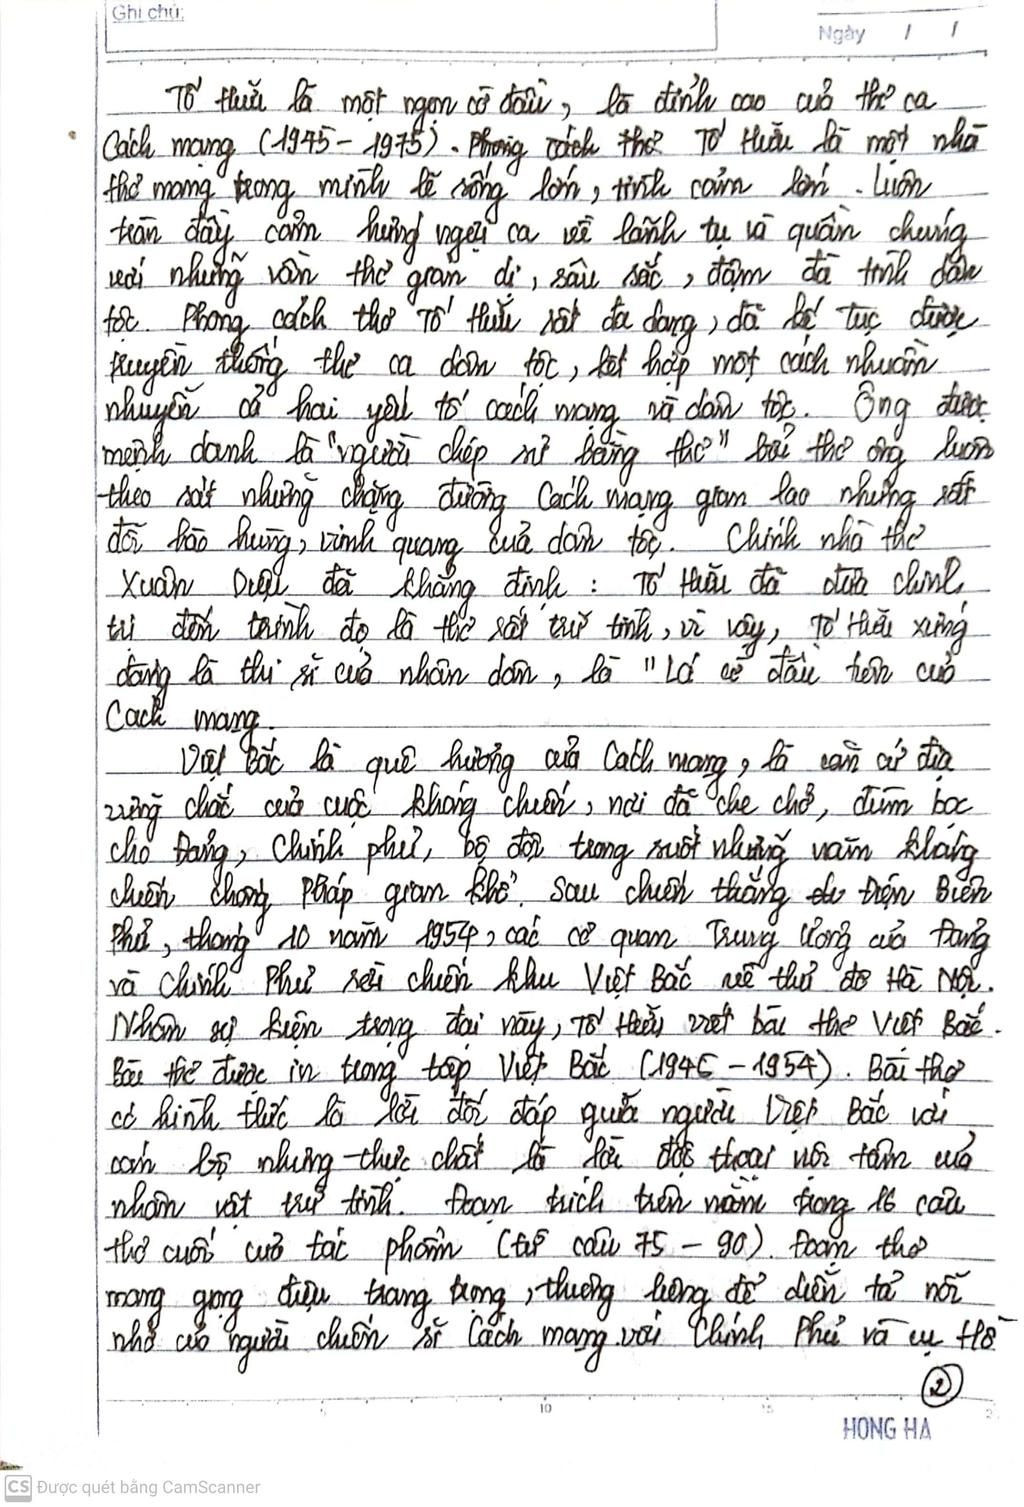 Ghi chú:
Ngày / /
Tố Hữu là một ngọn cờ đầu, là đỉnh cao của thơ ca
Cách mạng (1945 - 1975). Phong cách thơ Tố Hữu là một nhà
thơ mang trong mình lẽ sống lớn, tình cảm lớn. Luôn
tràn đầy cảm hứng ngợi ca về lãnh tụ và quần chúng
với những vần thơ giản dị, sâu sắc, đậm đà tính dân
tộc. Phong cách thơ Tố Hữu rất đa dạng, đã kế tục được
truyền thống thơ ca dân tộc, kết hợp một cách nhuần
nhuyễn cả hai yếu tố cách mạng và dân tộc. Ông được
mệnh danh là "người chép sử bằng thơ" bởi thơ ông luôn
theo sát những chặng đường Cách mạng gian lao nhưng rất
đỗi hào hùng, vinh quang của dân tộc. Chính nhà thơ
Xuân Diệu đã khẳng định: Tố Hữu đã đưa chính
trị đến trình độ là thơ rất trữ tình, vì vậy, Tố Hữu xứng
đáng là thi sĩ của nhân dân, là "Lá cờ đầu tiên của
Cách mạng.
Việt Bắc là quê hương của Cách mạng, là căn cứ địa
vững chắc của cuộc kháng chiến, nơi đã che chở, đùm bọc
cho Đảng, Chính phủ, bộ đội trong suốt những năm kháng
chiến chống Pháp gian khổ. Sau chiến thắng Điện Biên
Phủ, tháng 10 năm 1954, các cơ quan Trung Ương của Đảng
và Chính Phủ rời chiến khu Việt Bắc về thủ đô Hà Nội.
Nhân sự kiện trọng đại này, Tố Hữu viết bài thơ Việt Bắc.
Bài thơ được in trong tập Việt Bắc (1946 - 1954). Bài thơ
có hình thức là lời đối đáp giữa người Việt Bắc với
cán bộ nhưng thực chất là lời độc thoại nội tâm của
nhân vật trữ tình. Đoạn trích trên nằm trong 16 câu
thơ cuối của tác phẩm (từ câu 75 - 90). Đoạn thơ
mang giọng điệu trang trọng, thiêng liêng để diễn tả nỗi
nhớ của người chiến sĩ Cách mạng với Chính Phủ và cụ Hồ
2
10
15
HONG HA
CS Được quét bằng CamScanner